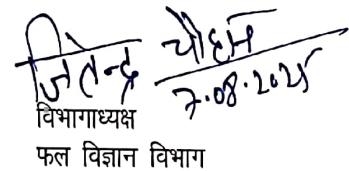 जितेन्द्र चौहान
7.08.2025
विभागाध्यक्ष
फल विज्ञान विभाग